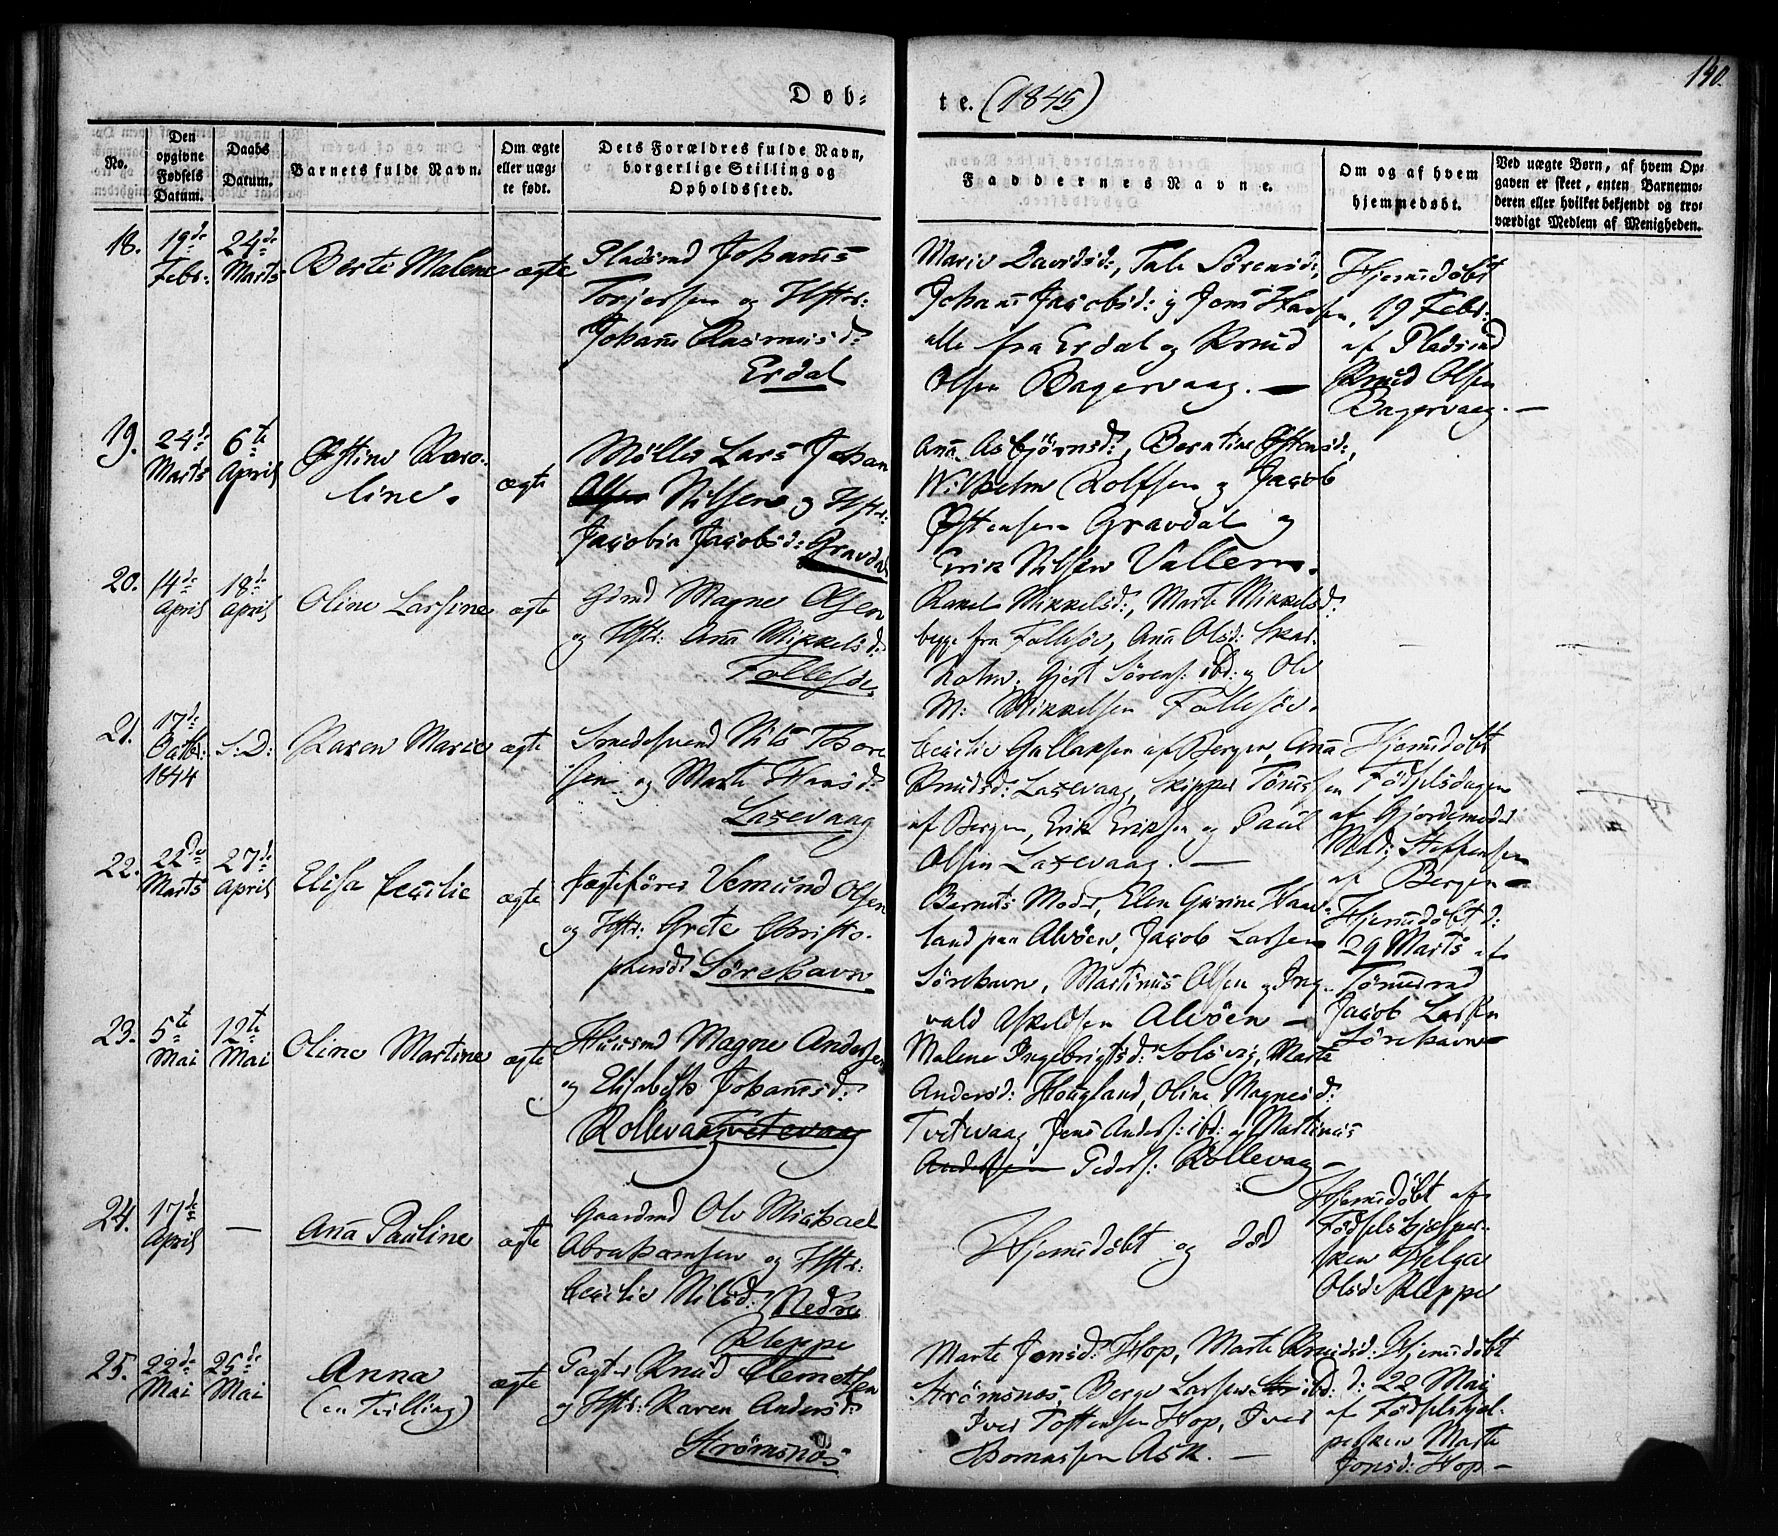 140.
Døb-
te. (1845)
No.
Den opgivne Fødsels Datum.
Daabs Datum.
Barnets fulde Navn.
Om ægte eller uægte født.
Dets Forældres fulde Navn, borgerlige Stilling og Opholdssted.
Faddernes Navne.
Om og af hvem hjemmedøbt.
Ved uægte Børn, af hvem Opgaven er skeet, enten Barnemoderen eller hvilket bekjendt og troværdigt Medlem af Menigheden.
18.
19de Febr:
24de Marts
Berte Malene
ægte
Pladsmd Johannes
Torjersen og Hstr:
Johane Rasmusd:
Erdal
Marie Davidsd:, Tale Sørensd:,
Johane Jacobsd: og Jens Hansen,
alle fra Erdal og Knud
Olsen Bagervaag. —
Hjemmedøbt
19 Febr:
af Pladsmd
Knud Olsen
Bagervaag. —
19.
24de Marts
6te April
Østine Karo-
line.
ægte
Møller Lars Johan
Nilsen og Hstr:
Jacobia Jacobsd: Gravdal
Ana Asbjørnsd:, Berntine Østensd:,
Wilhelm Rolfsen og Jacob
Østensen Gravdal og
Erik Nilsen Vallem.
20.
14de April
18de April
Oline Larsine
ægte
Gdmd Magne Olsen
og Hstr: Ana Mikkelsd:
Follesøe
Rakel Mikkelsd:, Marte Mikkelsd:
begge fra Follesøe, Ana Olsd:
Gjert Sørens: ibd: og Ole
M: Mikkelsen Follesøe.
21.
17de Octbr: 1844
S:D:
Karen Marie
ægte
Smedsvend Nils Thore
sen og Marte Hansd:
Laxevaag
Cecilie Gullaksen af Bergen, Ana
Knudsd: Laxevaag, Skipper Tønnesen
af Bergen, Erik Eriksen og Paul
Olsen Laxevaag. —
Hjemmedøbt
Fødselsdagen
af Gjordemoder
Mad: Steffensen
af Bergen —
22.
22de Marts
27de April
Elisa Cecilie
ægte
Jægtefører Vemund Olsen
og Hstr: Grete Christo-
phersd: Sørehavn
Barnets Moder, Elen Gurine Haa-
land paa Alvøen, Jacob Larsen
Sørehavn, Martinus Olsen og Ing-
vald Askeldsen Alvøen —
Hjemmedøbt d:
29 Marts af
Tømmermd
Jacob Larsen
Sørehavn —
23.
5te Mai
12te Mai
Oline Martine
ægte
Huusmd Magne Andersen
og Elisabeth Johannesd:
Rollevaag Tvetevaag
Malene Ingebrigtsd: Solsvig, Marte
Andersd: Hougland, Oline Magnesd:
Tvetevaag Jens Anders: ibd: og Martinus
Andersen Peders: Rollevaag —
24.
17de April
—
Ana Pauline
ægte
Gaardmd Ole Michael
Abrahamsen og Hstr:
Cecilie Nilsd: Nedre
Kleppe
Hjemmedøbt og død
Hjemmedøbt af
Fødselshjelper-
sken Helga
Olsd: Kleppe
25.
22de Mai
25de Mai
Anna
(en Tvilling)
ægte
Pagter Knud Clemetsen
og Hstr: Karen Andersd:
Strømsnæs
Marte Jonsd: Hop, Marte Knudsd:
Strømsnæs, Berge Larsen ibd:
Iver Tostensen Hop, Iver
Thomassen Ask. —
Hjemmedøbt
d: 22 Mai
af Fødselshjel-
persken Marte
Jonsd: Hop —